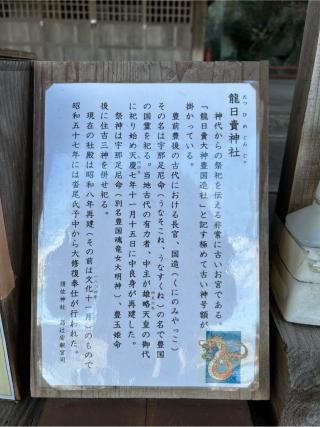 龍日賣神社
たつひめじんじゃ
神代からの祭祀を伝える非常に古いお宮である。
「龍日賣大神豊国造社」と記す極めて古い神号額が
掛かっている。
豊前豊後の古代における長官、国造（くにのみやっこ）
その名は宇那足尼命（うなそこね、うなすくね）の名で豊国
の国霊を祀る。当地古代の有力者、中主が雄略天皇の御代
に祀り始め天慶七年十一月十五日に中良身が再建した。
祭神は宇那足尼命（別名豊国魂竜女大明神）、豊玉姫命
後に住吉三神を併せ祀る。
現在の社殿は昭和八年再建（その前は文化十一月）のもので
昭和五十七年には沓尾氏子中から大修復奉仕が行われた。
須佐神社 高辻安親宮司